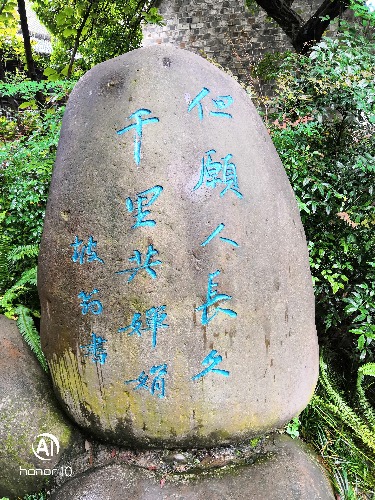 但願人長久
千里共嬋娟
honor 10
AI